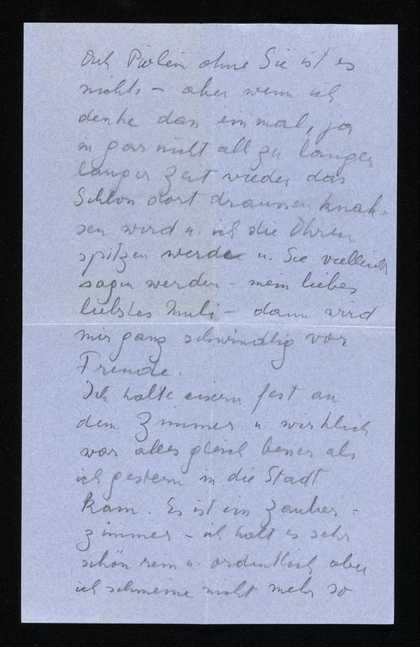 Ach Piolein ohne Sie ist es
nichts – aber wenn ich
denke dan einmal, ja
in gar nicht all zu langer
langer Zeit wieder das
Schloss dort draussen knak-
sen wird u. ich die Ohren
spitzen werde u. Sie vielleicht
sagen werden – mein liebes
liebstes Muli – dann wird
mir ganz schwindlig vor
Freude.
Ich halte eisern fest an
dem Zimmer u. wirklich
war alles gleich besser als
ich gestern in die Stadt
kam. Es ist ein Zauber-
zimmer – ich halt es sehr
schön rein u. ordentlich aber
ich schmeisse nicht mehr so